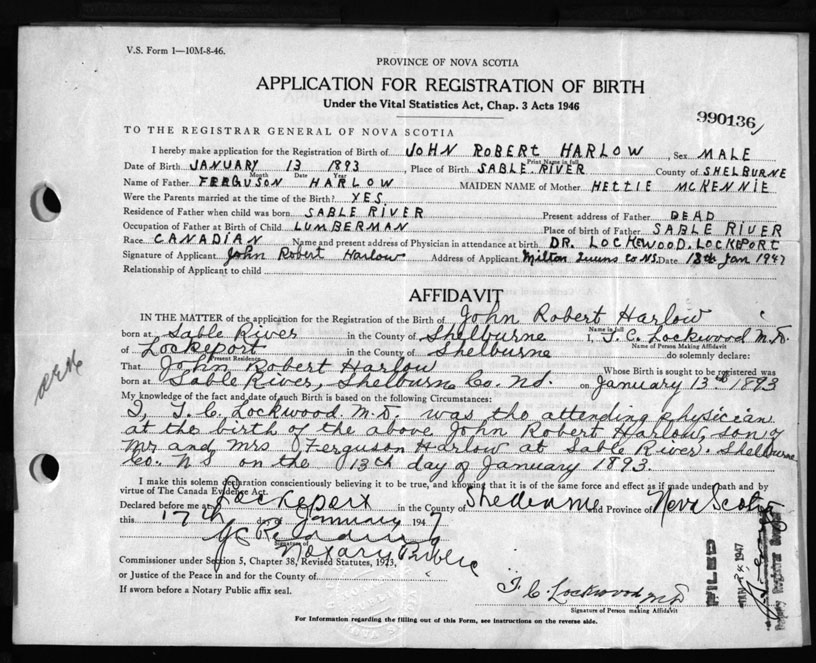 V.S. Form 1—10M-8-46.
PROVINCE OF NOVA SCOTIA
APPLICATION FOR REGISTRATION OF BIRTH
Under the Vital Statistics Act, Chap. 3 Acts 1946
990136
TO THE REGISTRAR GENERAL OF NOVA SCOTIA
I hereby make application for the Registration of Birth of JOHN ROBERT HARLOW, Sex MALE
Print Name in full
Date of Birth JANUARY 13 1893, Place of Birth SABLE RIVER County of SHELBURNE
Month Date Year
Name of Father FERGUSON HARLOW MAIDEN NAME of Mother HETTIE McKENNIE
Were the Parents married at the time of the Birth? YES.
Residence of Father when child was born SABLE RIVER Present address of Father DEAD
Occupation of Father at Birth of Child LUMBERMAN Place of birth of Father SABLE RIVER
Race CANADIAN Name and present address of Physician in attendance at birth DR. LOCKEWOOD. LOCKEPORT
Signature of Applicant John Robert Harlow Address of Applicant Milton Co NS. Date Jan 1947
Relationship of Applicant to child
AFFIDAVIT
IN THE MATTER of the application for the Registration of Birth of John Robert Harlow
Name in full
born at Sable River in the County of Shelburne I, Lockwood M.D.
Name of Person Making Affidavit
of Lockeport in the County of Shelburne do solemnly declare:
Present Residence
That John Robert Harlow Whose Birth is sought to be registered was
born at Sable River, Shelburne Co. on January 13 1893
My knowledge of the fact and date of such Birth is based on the following Circumstances:
I, Lockwood M.D. was the attending physician
at the birth of the above John Robert Harlow, son of
Mr and Mrs Ferguson Harlow at Sable River. Shelburne
Co. N S on the 13th day of January 1893.
I make this solemn declaration conscientiously believing it to be true, and knowing that it is of the same force and effect as if made under oath and by
virtue of The Canada Evidence Act.
Declared before me at Lockeport in the County of Shelburne and Province of Nova Scotia
this 17th day of January 1947
Signature of
Notary Public
Commissioner under Section 5, Chapter 38, Revised Statutes, 1923,
or Justice of the Peace in and for the County of
If sworn before a Notary Public affix seal.
Lockwood, M.D
Signature of Person making Affidavit
FILED
1947
For Information regarding the filling out of this Form, see instructions on the reverse side.